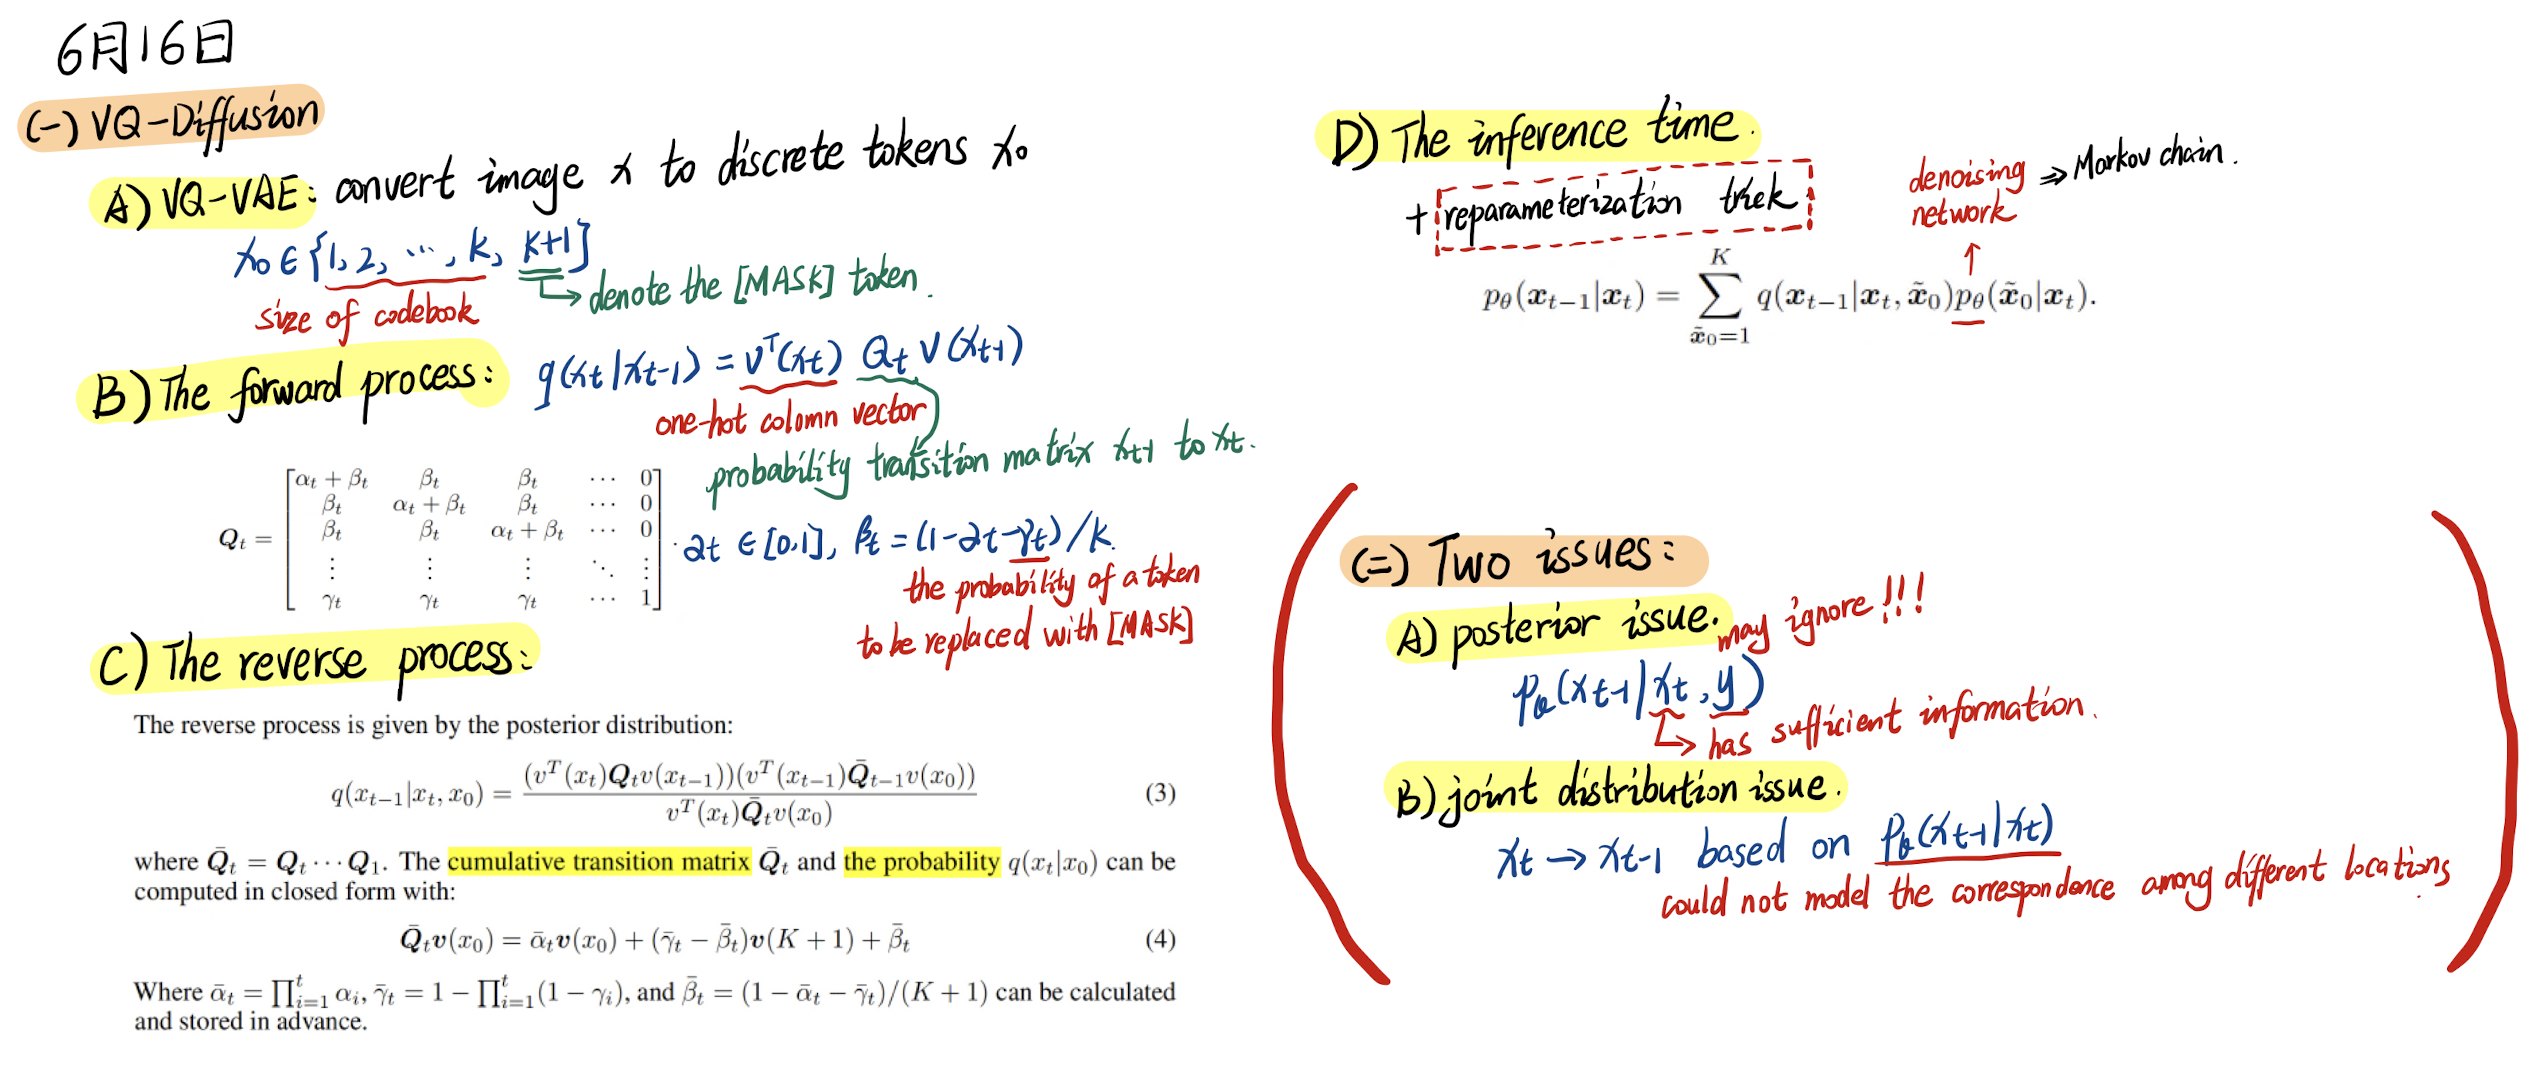 6月16日
(一) VQ-Diffusion
A) VQ-VAE: convert image x to discrete tokens x₀
x₀ ∈ {1, 2, ..., k, k+1}
size of codebook
denote the [MASK] token.
B) The forward process: q(xt|xt-1) = vᵀ(xt) Qt v(xt-1)
one-hot colomn vector
probability transition matrix xt-1 to xt.
Qt = [αt + βt βt βt ⋯ 0
βt αt + βt βt ⋯ 0
βt βt αt + βt ⋯ 0
⋮ ⋮ ⋮ ⋱ ⋮
γt γt γt ⋯ 1] .
αt ∈ [0,1], βt = (1-αt-γt)/k.
the probability of a token
to be replaced with [MASK]
C) The reverse process:
The reverse process is given by the posterior distribution:
q(xt−1|xt, x0) = (vᵀ(xt)Qtv(xt−1))(vᵀ(xt−1)Q̄t−1v(x0)) / vᵀ(xt)Q̄tv(x0) (3)
where Q̄t = Qt ⋯ Q1. The cumulative transition matrix Q̄t and the probability q(xt|x0) can be
computed in closed form with:
Q̄tv(x0) = ᾱtv(x0) + (γ̄t − β̄t)v(K + 1) + β̄t (4)
Where ᾱt = ∏ᵗi=1 αi, γ̄t = 1 − ∏ᵗi=1(1 − γi), and β̄t = (1 − ᾱt − γ̄t)/(K + 1) can be calculated
and stored in advance.
D) The inference time.
+ reparameterization trick
denoising network ⇒ Markov chain.
pθ(xt−1|xt) = ∑ᴷx̃0=1 q(xt−1|xt, x̃0)pθ(x̃0|xt).
(二) Two issues:
A) posterior issue. may ignore!!!
pθ(xt-1|xt, y)
has sufficient information.
B) joint distribution issue.
xt → xt-1 based on pθ(xt-1|xt)
could not model the correspondence among different locations.